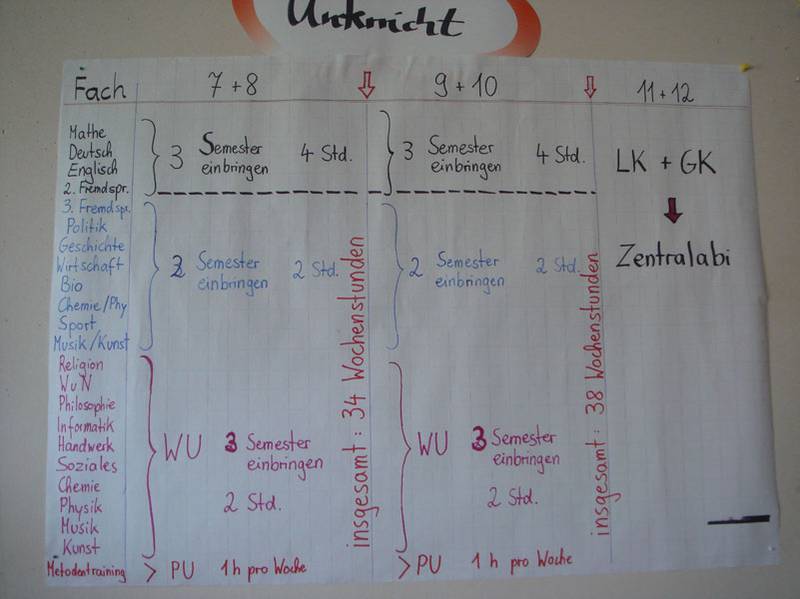 Unterricht
Fach 7+8 9+10 11+12
Mathe
Deutsch
Englisch
2. Fremdspr.
3 Semester einbringen 4 Std.
3 Semester einbringen 4 Std.
LK + GK
Zentralabi
3. Fremdspr.
Politik
Geschichte
Wirtschaft
Bio
Chemie/Phy
Sport
Musik/Kunst
2 Semester einbringen 2 Std.
2 Semester einbringen 2 Std.
insgesamt: 34 Wochenstunden
insgesamt: 38 Wochenstunden
Religion
WuN
Philosophie
Informatik
Handwerk
Soziales
Chemie
Physik
Musik
Kunst
WU 3 Semester einbringen
2 Std.
WU 3 Semester einbringen
2 Std.
Metodentraining > PU 1 h pro Woche > PU 1 h pro Woche